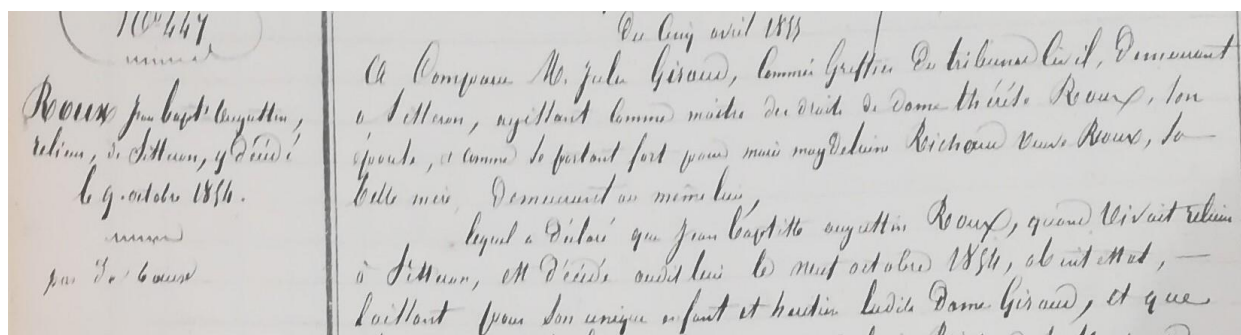 N° 447
Roux Jean Bapte Augustin,
relieur, de Sisteron, y décédé
le 9 octobre 1854.
pas de baux
Du cinq avril 1855
A Comparu M. Jules Giraud, Commis Greffier du tribunal Civil, Demeurant
à Sisteron, agissant Comme maitre des droits de dame thérèse Roux, son
épouse, et comme se portant fort pour marie magdeleine Richaud veuve Roux, sa
belle mère, Demeurant au même lieu,
lequel a déclaré que Jean baptiste augustin Roux, quand Vivait relieur
à Sisteron, est décédé audit lieu le neuf octobre 1854, ab intestat, —
Laissant pour Son unique enfant et héritier Ladite Dame Giraud, et que